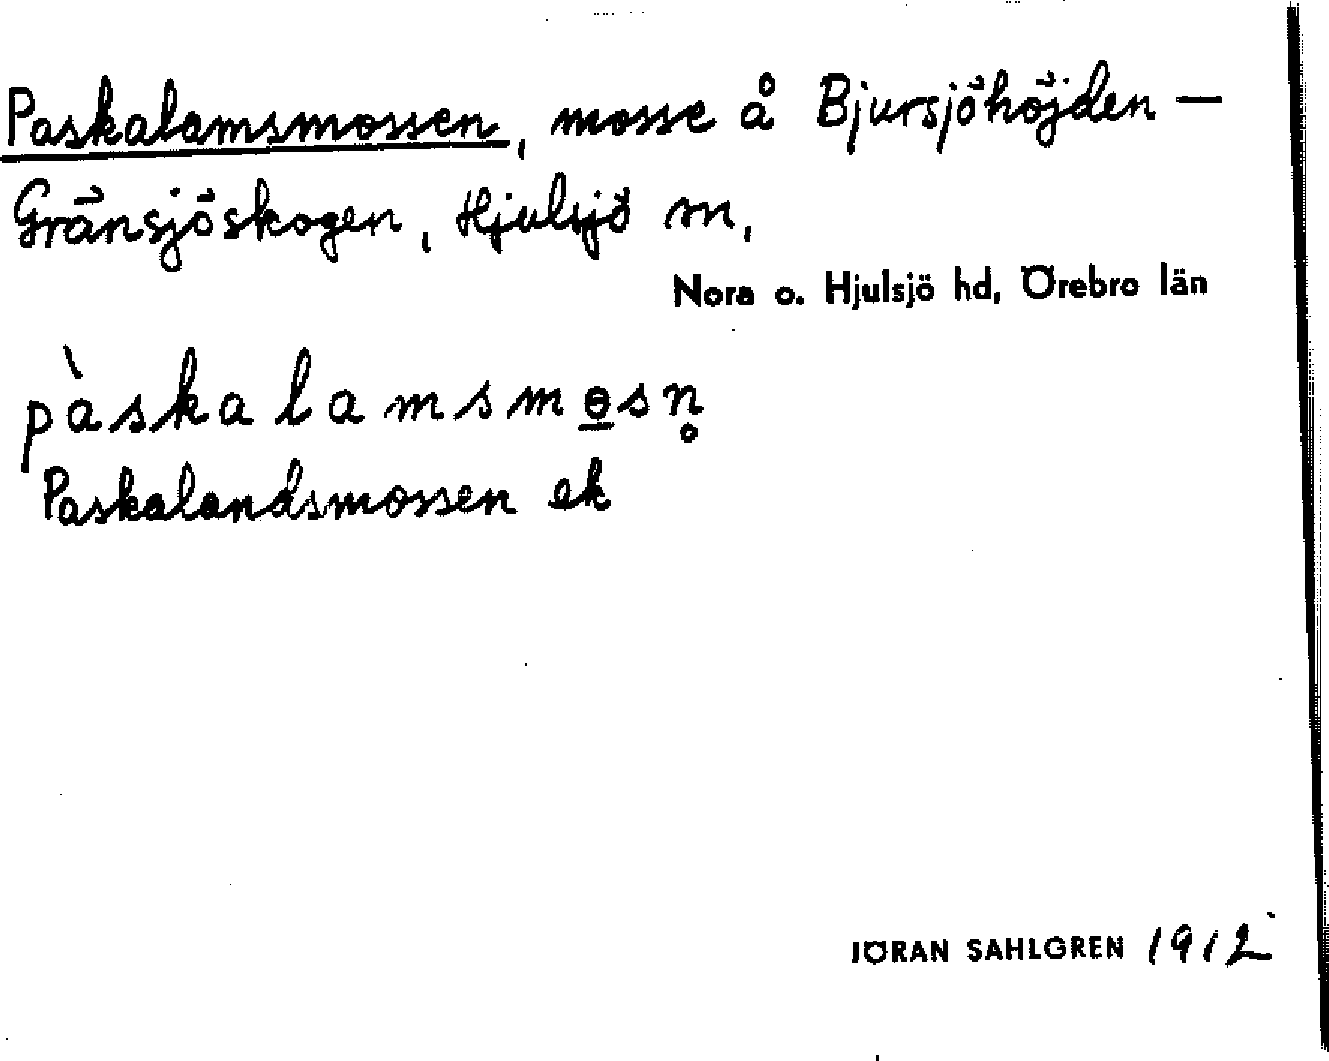 Paskalamsmossen, mosse å Bjursjöhöjden —
Gränsjöskogen, Hjulsjö sn,
Nora o. Hjulsjö hd, Örebro län
pàskalamsmɵ̱sn̥
Paskalandsmossen ek
JÖRAN SAHLGREN 1912